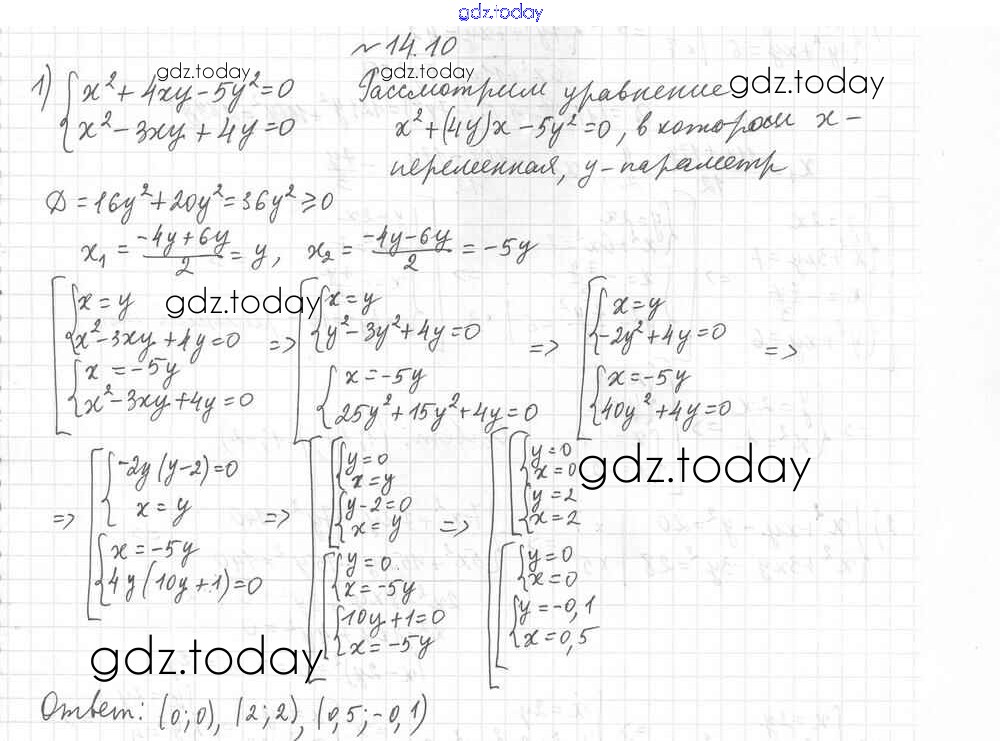 gdz.today
№14.10
1) { x² + 4xy - 5y² = 0
{ x² - 3xy + 4y = 0
gdz.today
Рассмотрим уравнение
gdz.today
gdz.today
x² + (4y)x - 5y² = 0, в котором x -
переменная, y - параметр
D = 16y² + 20y² = 36y² ⩾ 0
x₁ = (-4y + 6y)/2 = y, x₂ = (-4y - 6y)/2 = -5y
[ { x = y
{ x² - 3xy + 4y = 0
{ x = -5y
{ x² - 3xy + 4y = 0
gdz.today
=> [ { x = y
{ y² - 3y² + 4y = 0
{ x = -5y
{ 25y² + 15y² + 4y = 0
=> [ { x = y
{ -2y² + 4y = 0
{ x = -5y
{ 40y² + 4y = 0
=>
=> [ { -2y(y-2) = 0
{ x = y
{ x = -5y
{ 4y(10y+1) = 0
=> [ [ { y = 0
{ x = y
{ y - 2 = 0
{ x = y
[ { y = 0
{ x = -5y
{ 10y + 1 = 0
{ x = -5y
=> [ [ { y = 0
{ x = 0
{ y = 2
{ x = 2
[ { y = 0
{ x = 0
{ y = -0,1
{ x = 0,5
gdz.today
gdz.today
Ответ: (0; 0), (2; 2), (0,5; -0,1)